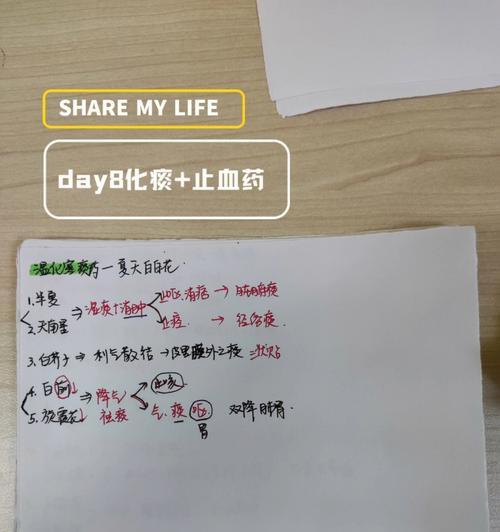 SHARE MY LIFE
day8化痰+止血药
温化寒痰药一夏天白白花
1.半夏
2.天南星
⇒ 湿痰+消肿
止呕.消痞 → 脏腑痰
→ 经络痰
3.白芥子 ⇒ 利气散结 → 皮里膜外之痰
4.白前↓
5.旋覆花↓
⇒ 降气
祛痰
气.痰
胃
双降肺胃.